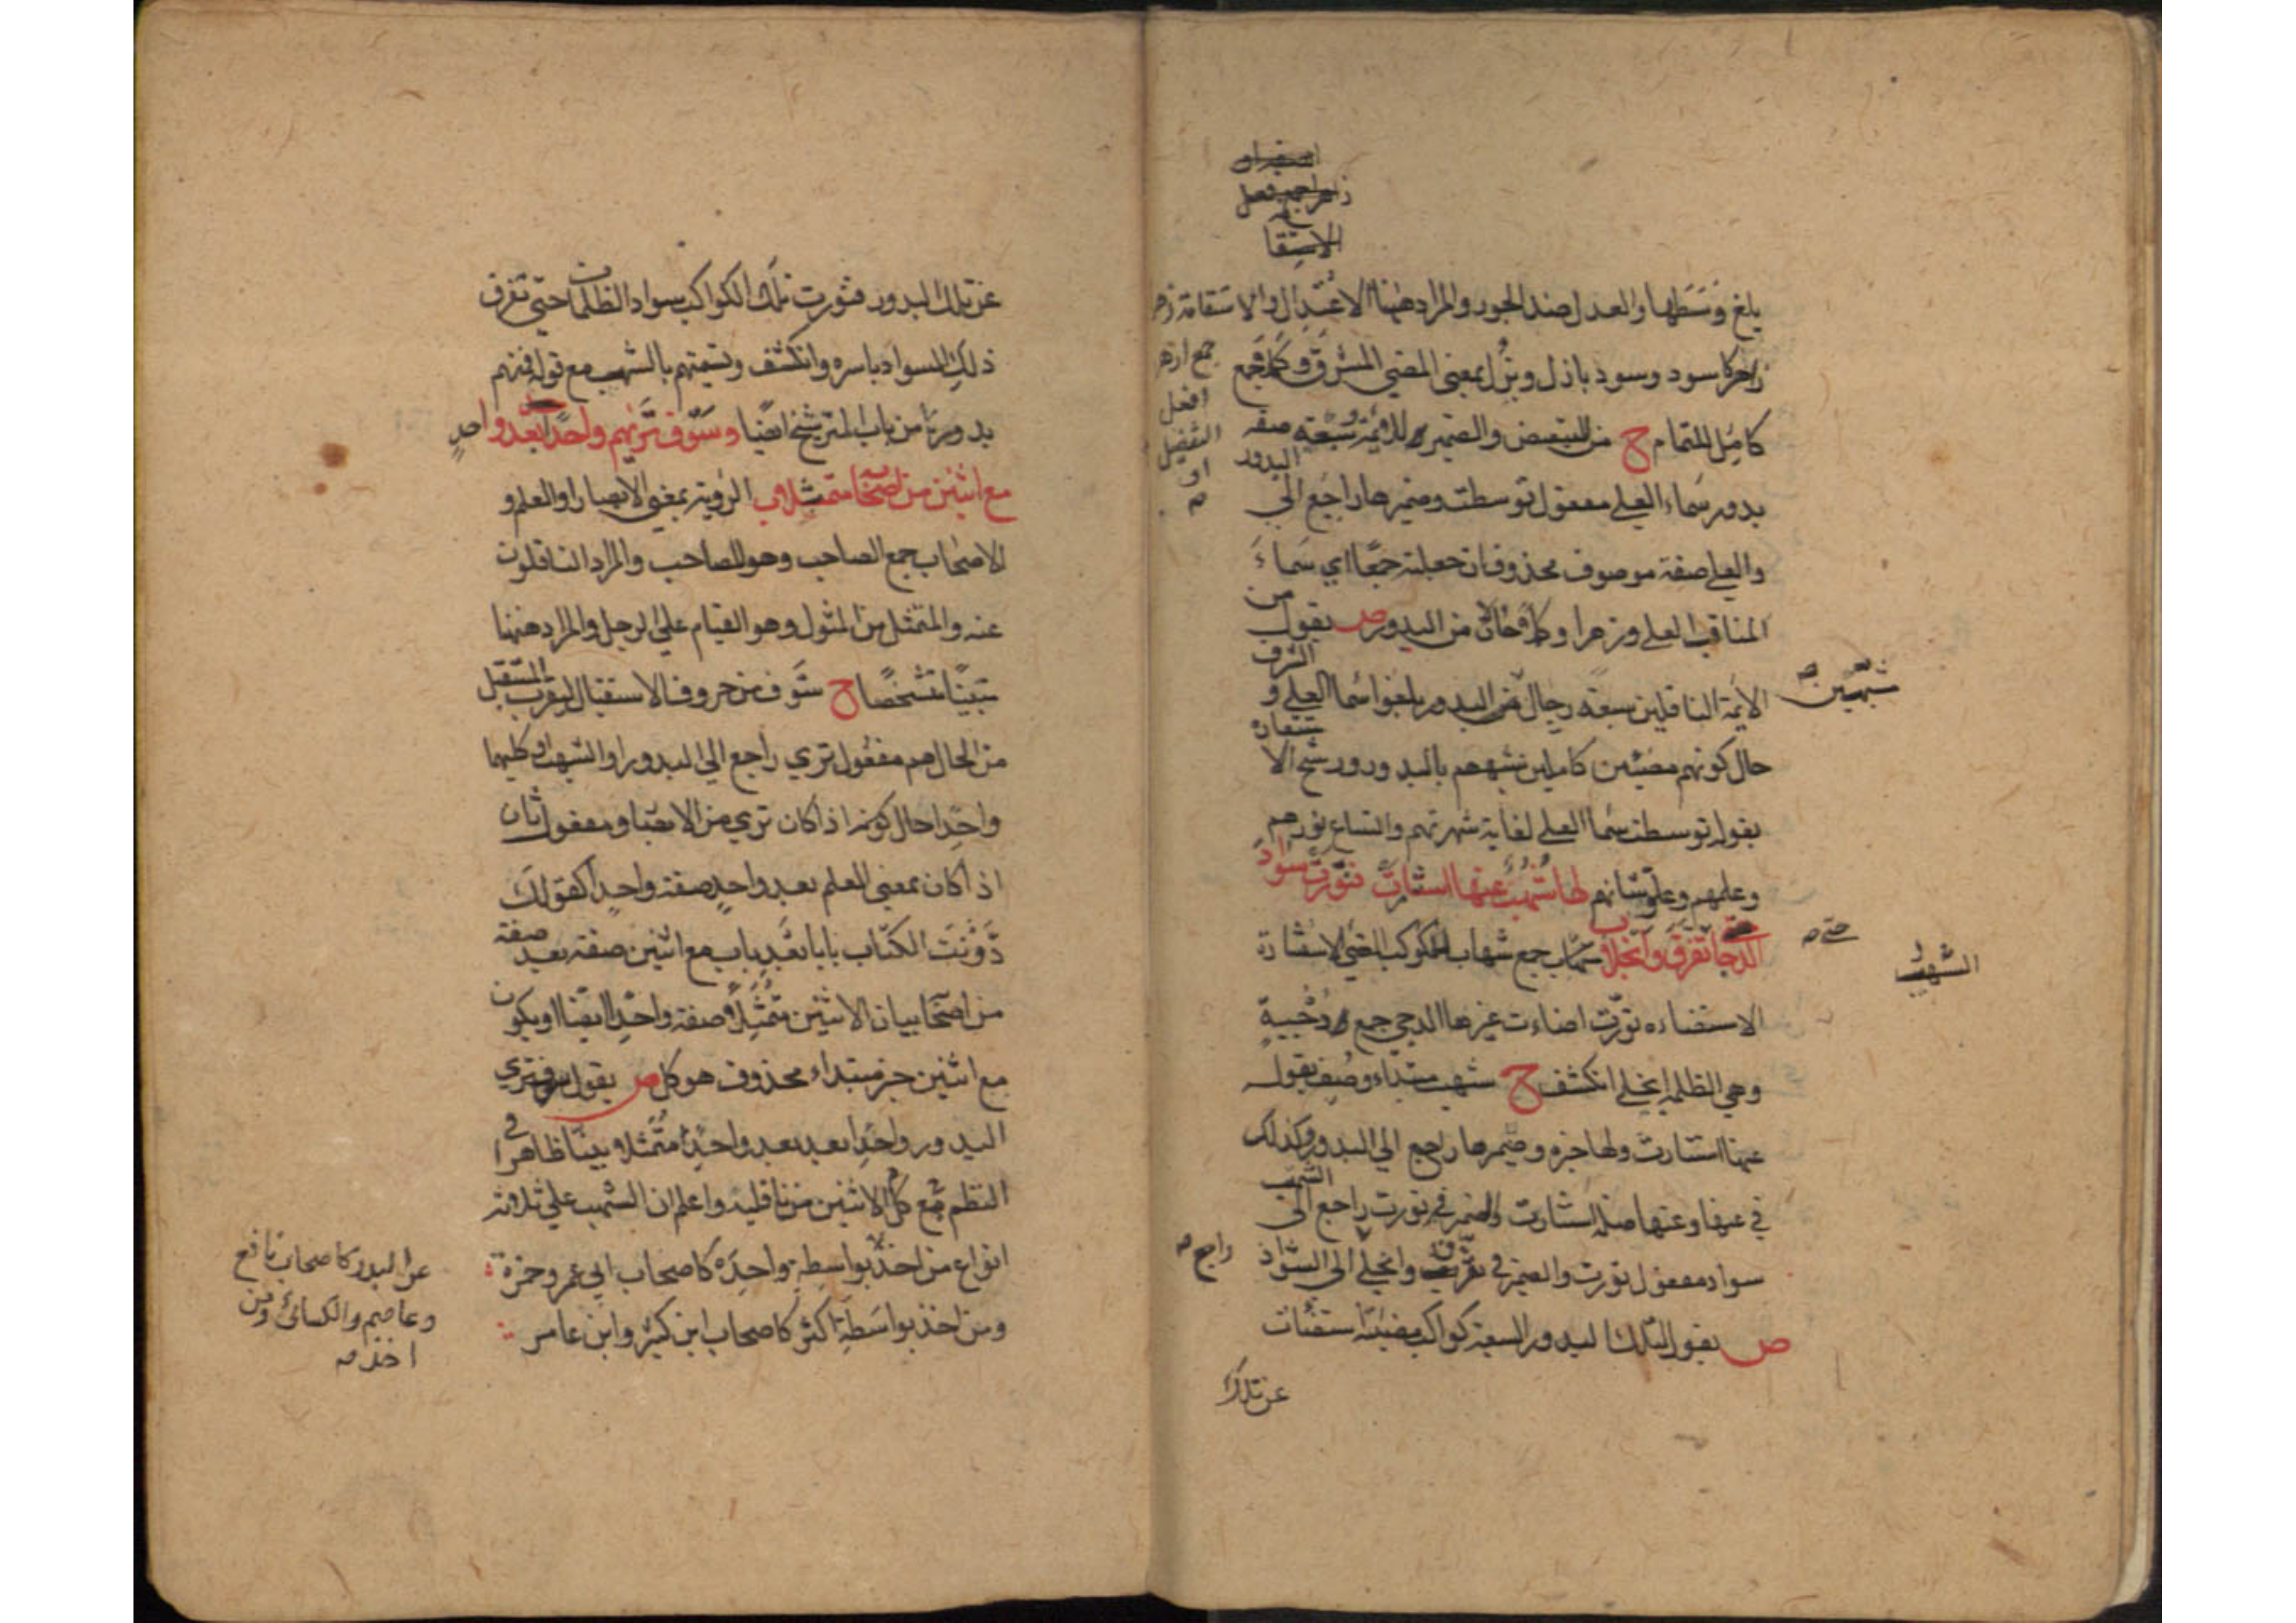 بلغ وسطها والعدل ضد الجور والمراد ههنا الاعتدال والاستقامة زهر
كاسود وسود باذل وبزل بمعنى المضي المشرق وكملا جمع
كامل التمام ح من للتبعيض والضمير للائمة وسبعة صفة
البدور
بدور سماء العلى مفعول توسطت وضميرها راجع الى
والعلى صفة موصوف محذوف ان جعلته جمعا اي سماء
المناقب العلى وزهرا وكملا حالان من البدور ص يقول من
الائمة الناقلين سبعة رجال هي البدور بلغوا سما العلى و
الشرف
حال كونهم مضيئين كاملين شبههم بالبدور ورشح الا
ستعارة
بقوله توسطت سما العلى لغاية شهرتهم واتساع نورهم
وعلمهم وعلو شانهم لها شهب عنها استنارت فنورت سواد
الدجا تفرق وانجلا شهاب جمع شهاب الكوكب المضي الاستنارة
الاستضاءه نورت اضاءت غيرها الدجى جمع دجية
وهي الظلمة انجلى انكشف ح شهب مبتداء وصف بقوله
عنها استنارت ولها خبره وضميرها راجع الى البدور وكذلك
في عنها وعنها صلة استنارت والضمير في نورت راجع الى
الشهب
سواد مفعول نورت والضمير في تفرق وانجلى الى السواد
ص يقول لتلك البدور السبعة كواكب مضيئة استضات
عن تلك
جمع ازهر
افعل
التفضيل
او
شبههين
حتى
الشهب
راجع
عن تلك البدور فنورت تلك الكواكب سواد الظلمات حتى تفرق
ذلك السواد باسره وانكشف وتسميتهم بالشهب مع قوله فمنهم
بدور من باب الترشيخ ايضا وسوف تريهم واحدا بعد واحد
مع اثنين من اصحابه متمثلا الرؤية بمعنى الابصار او العلم و
الاصحاب جمع الصاحب وهو للصاحب والمراد الناقلون
عنه والمتمثل من المثول وهو القيام على الرجل والمراد ههنا
متبينا متشخصا ح سوف من حروف الاستقبال ليقرب المستقبل
من الحال هم مفعول ترى راجع الى البدور او الشهب او كليهما
واحدا حال كونه اذا كان ترى من الابصار ومفعول ثان
اذا كان بمعنى العلم بعد واحد صفة واحدا كقولك
دونت الكتاب بابا بعد باب مع اثنين صفة بعد صفة
من اصحابه بيان الاثنين متمثلا صفة واحدا ايضا او يكون
مع اثنين خبر مبتداء محذوف هو كل ص يقول سوف ترى
البدور واحدا بعد بعد واحد متمثلا مبينا ظاهرا في
النظم مع كل الاثنين من ناقليه واعلم ان الشهب على ثلاثة
انواع من اخذ بواسطة واحدة كاصحاب ابي عمرو وحمزة
ومن اخذ بواسطة اكثر كاصحاب ابن كثير وابن عامر
عن البدر كاصحاب نافع
وعاصم والكسائي ومن
اخذ